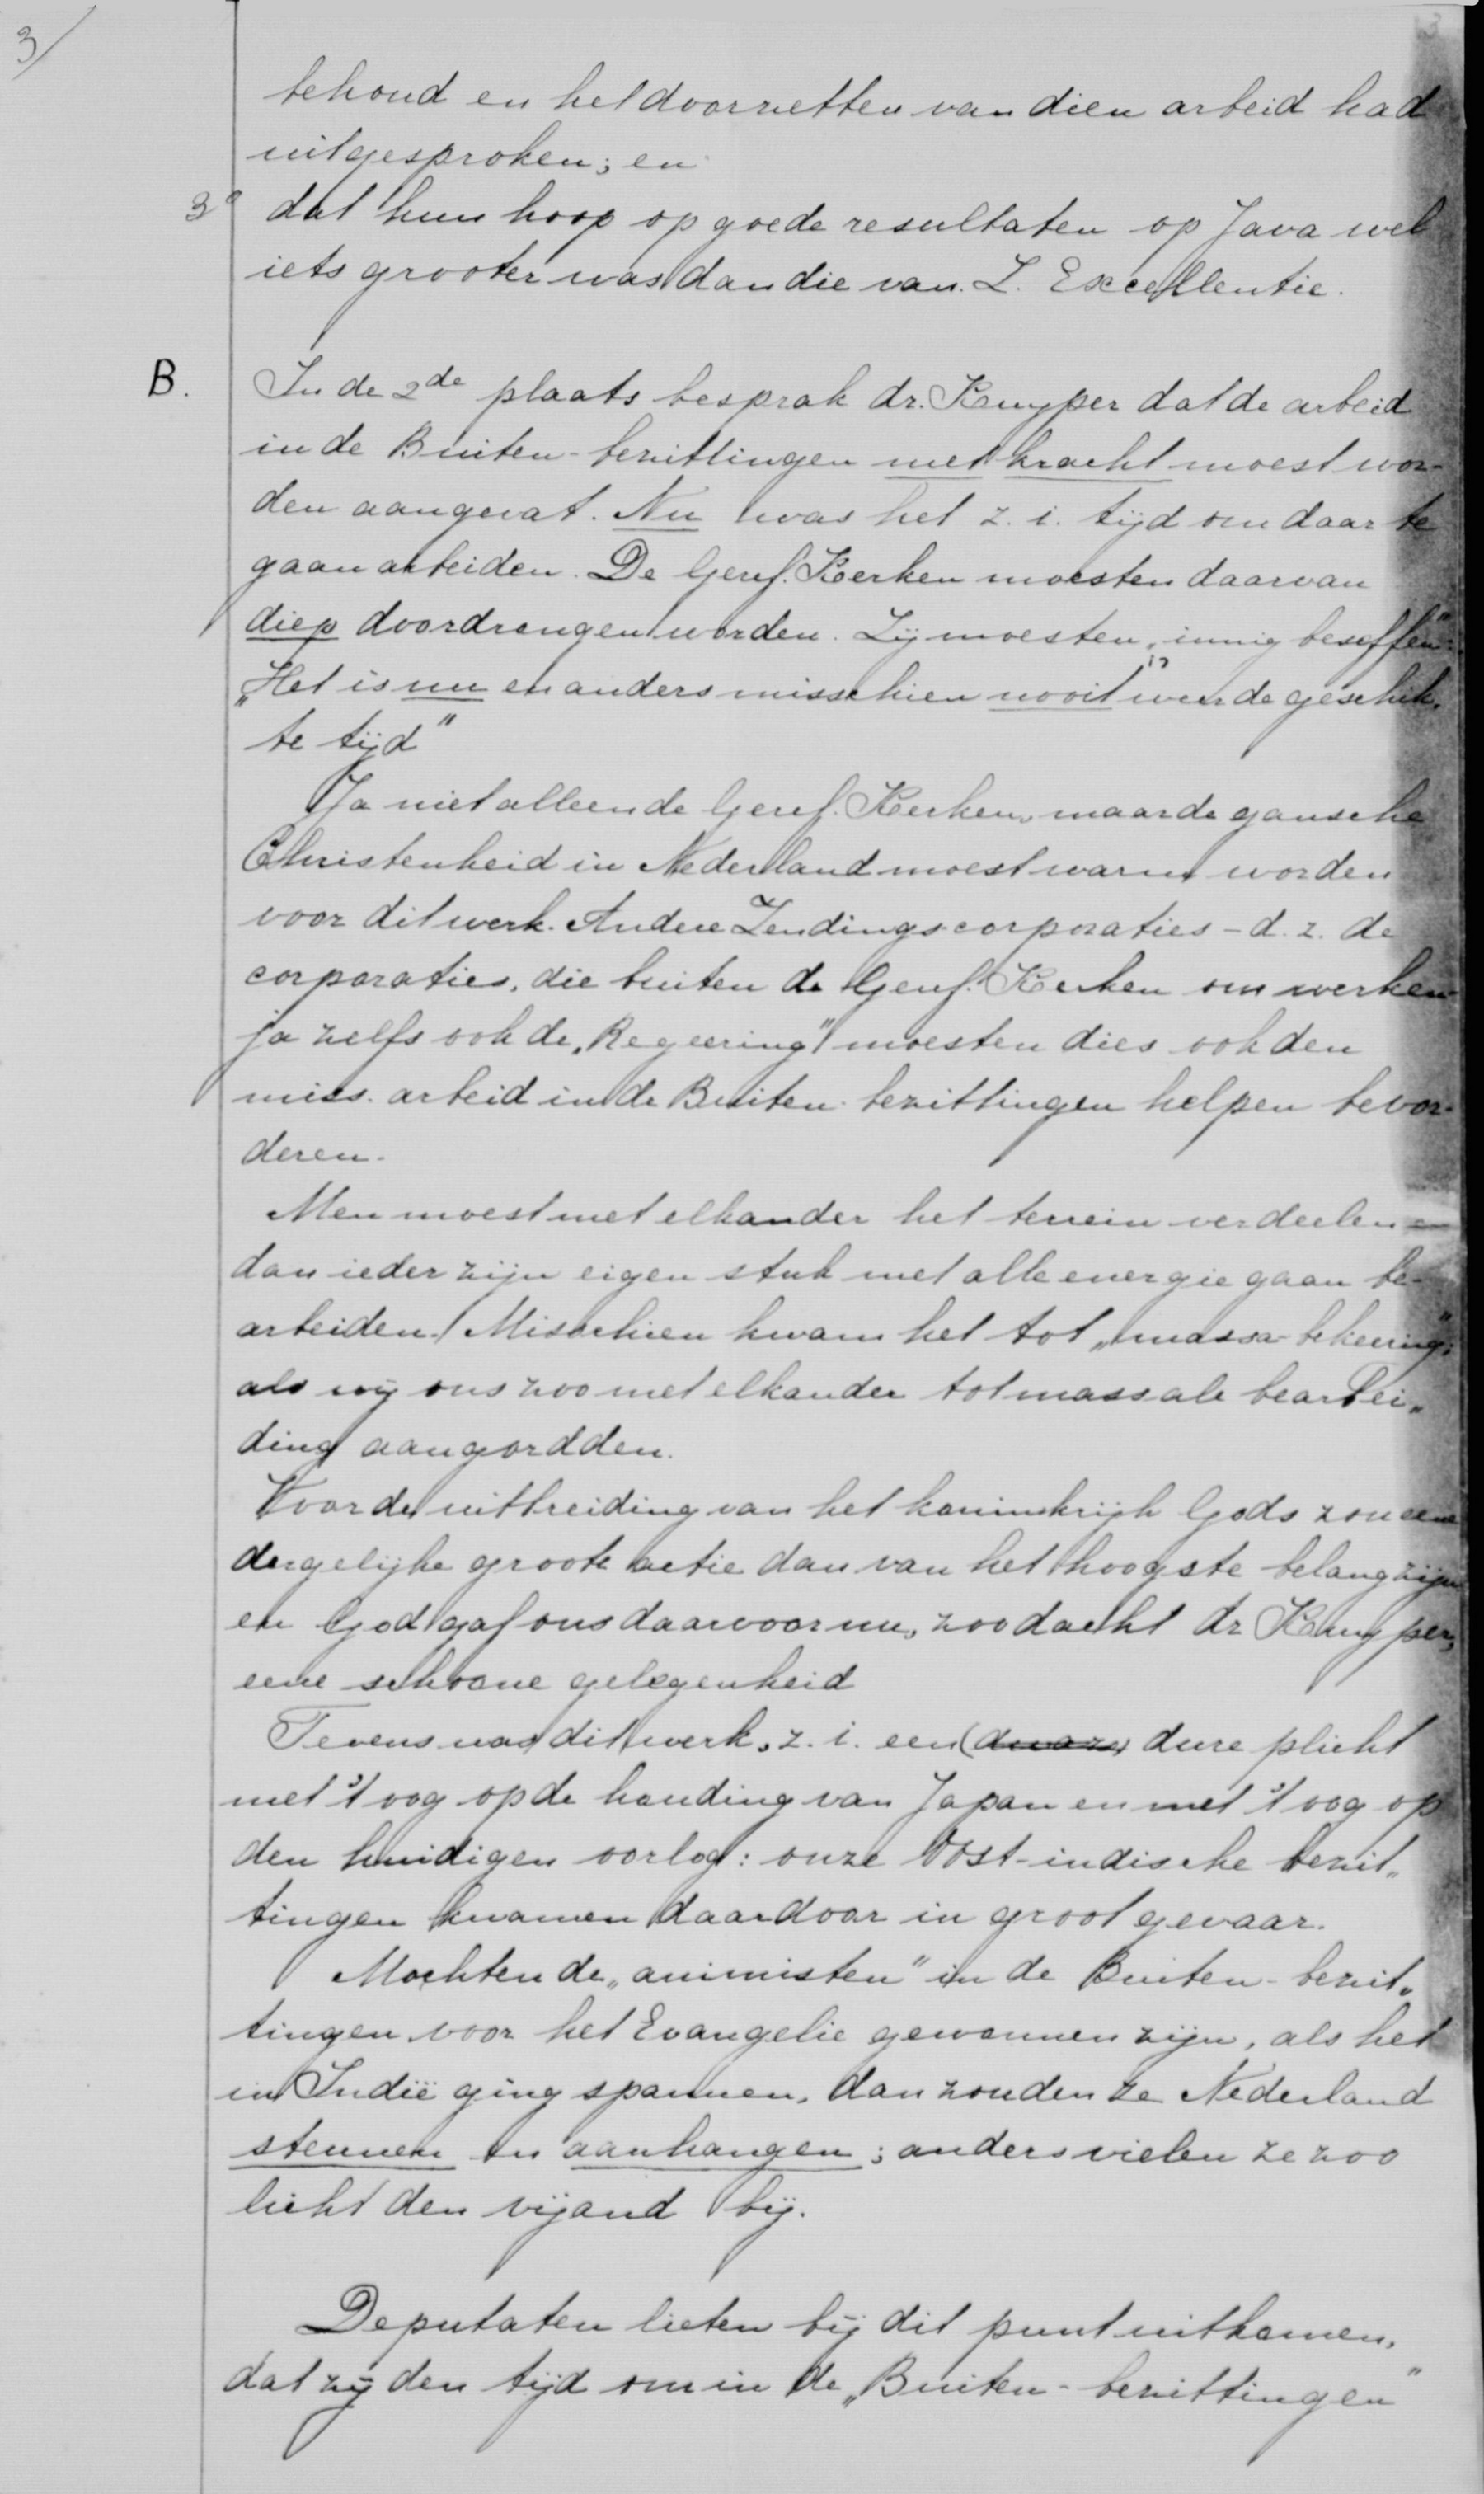 3/
behoud en het doorzetten van dien arbeid had
uitgesproken; en
3° dat hun hoop op goede resultaten op Java wel
iets grooter was dan die van Z. Excellentie.
B. In de 2de plaats besprak dr. Kuyper dat de arbeid
in de Buiten-bezittingen met kracht moest wor-
den aangevat. Nu was het z. i. tijd om daar te
gaan arbeiden. De Geref. Kerken moesten daarvan
diep doordrongen worden. Zij moesten „innig beseffen":
„Het is nu en anders misschien nooit weer de geschik-
te tijd"
Ja niet alleen de Geref. Kerken, maar de gansche
Christenheid in Nederland moest warm worden
voor dit werk. Andere Zendingscorporaties - d. z. de
corporaties, die buiten de Geref. Kerken om werken -
ja zelfs ook de „Regeering" moesten dies ook den
miss. arbeid in de Buiten-bezittingen helpen bevor-
deren.
Men moest met elkander het terrein verdeelen en
dan ieder zijn eigen stuk met alle energie gaan be-
arbeiden. Misschien kwam het tot „massa-bekeering";
als wij ons zoo met elkander tot massale bearbei„
ding aangordden.
Voor de uitbreiding van het koninkrijk Gods zou eene
dergelijke groote actie dan van het hoogste belang zijn
en God gaf ons daarvoor nu, zoo dacht dr Kuyper,
eene schoone gelegenheid
Tevens was dit werk, z. i. een (dwaze) dure plicht
met 't oog op de houding van Japan en met 't oog op
den huidigen oorlog: onze Oost-indische bezit„
tingen kwamen daardoor in groot gevaar.
Mochten de „animisten" in de Buiten-bezit„
tingen voor het Evangelie gewonnen zijn, als het
in Indië ging spannen, dan zouden ze Nederland
steunen en aanhangen; anders vielen ze zoo
licht den vijand bij.
Deputaten lieten bij dit punt uitkomen,
dat zij den tijd om in de „Buiten-bezittingen"